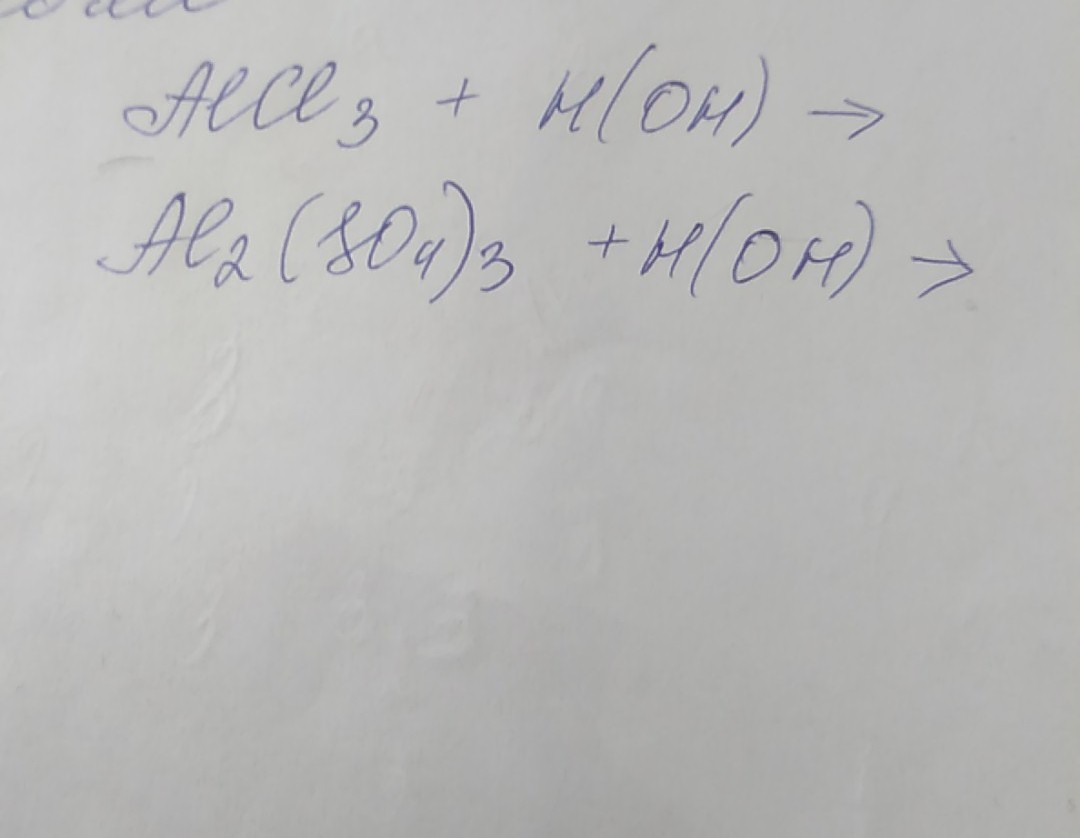 AlCl₃ + H(OH) →
Al₂(SO₄)₃ + H(OH) →